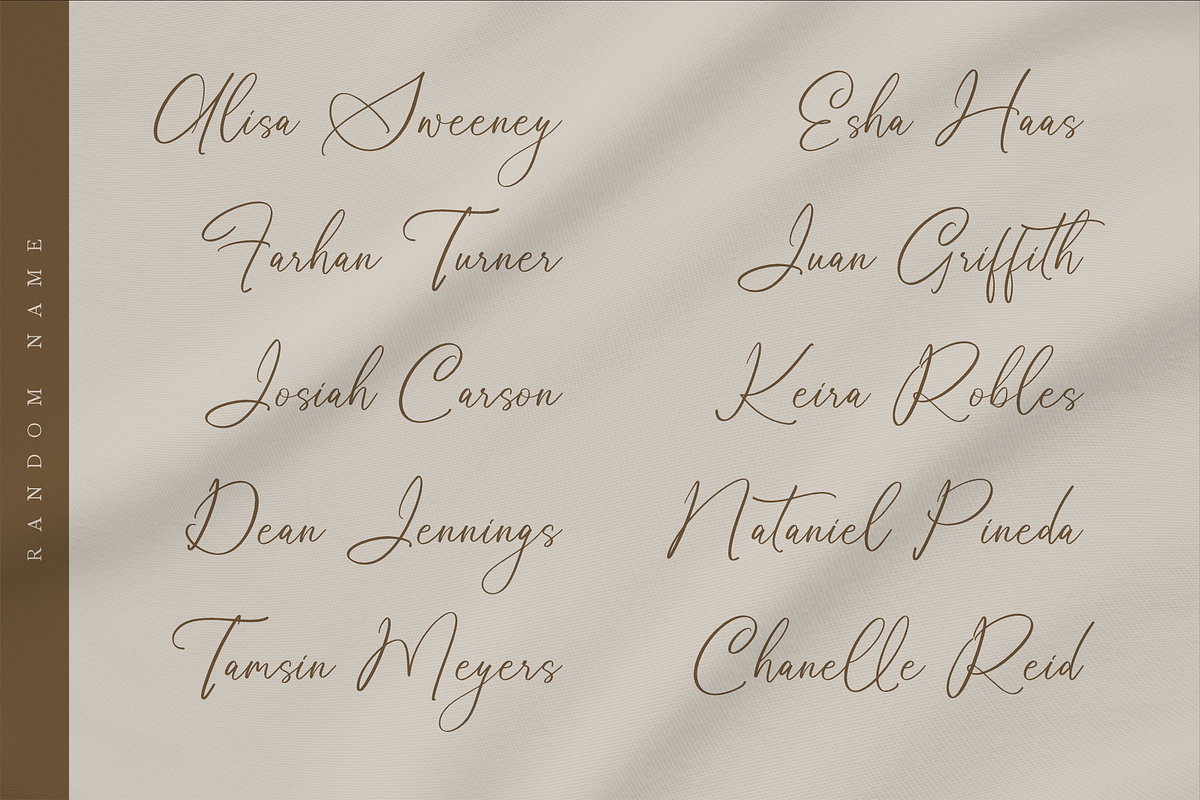 RANDOM NAME
Alisa Sweeney
Farhan Turner
Josiah Carson
Dean Jennings
Tamsin Meyers
Esha Haas
Juan Griffith
Keira Robles
Nataniel Pineda
Chanelle Reid